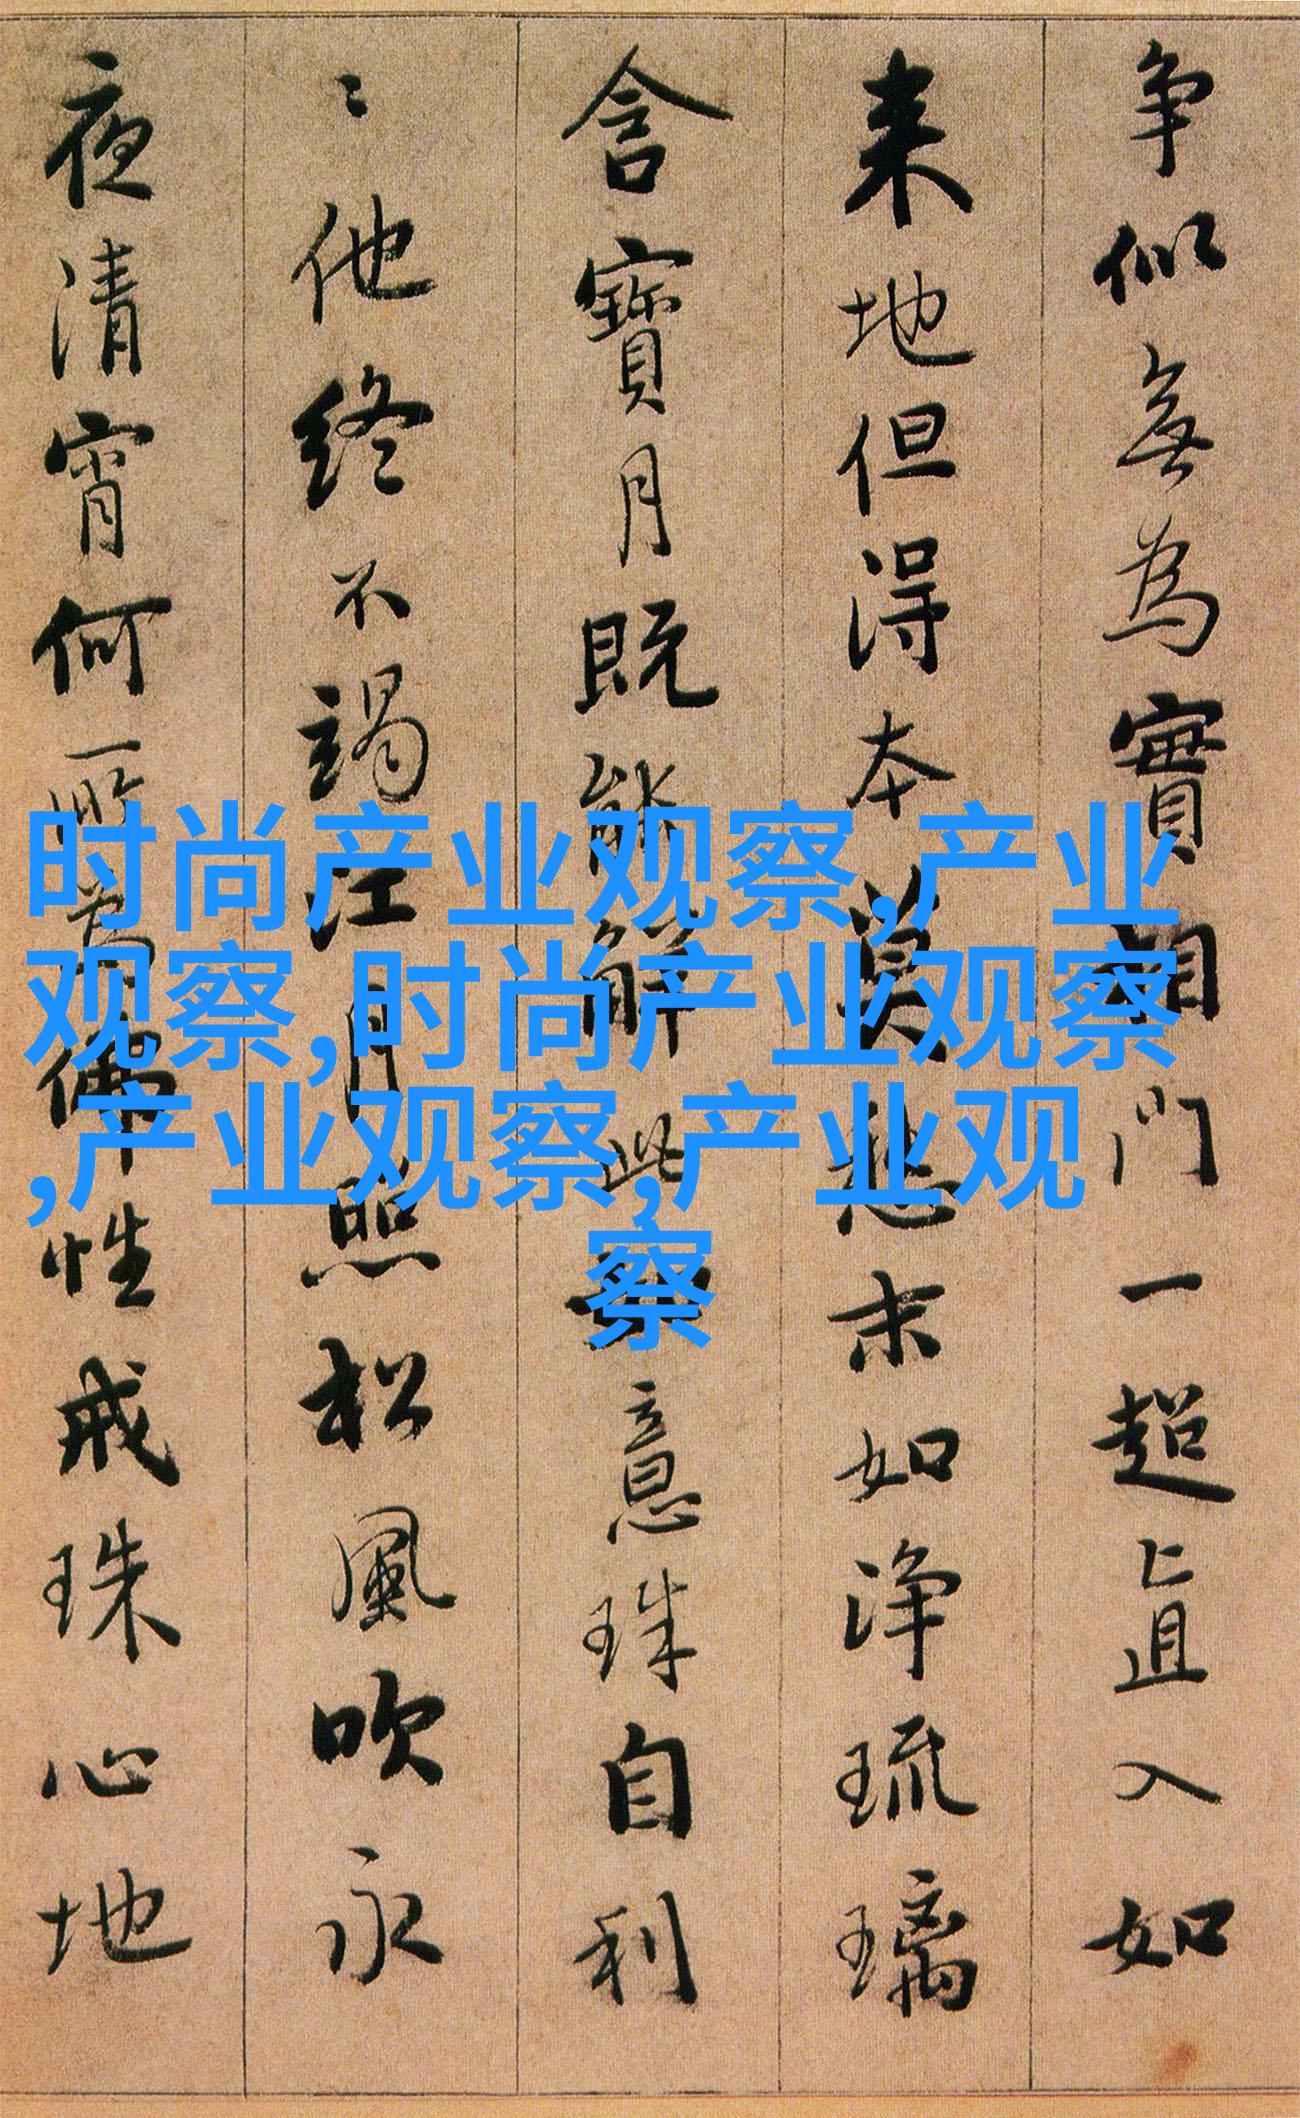 争似無為實相門一超直入如
来地但得本莫愁末如淨琉璃
含寶月既能解此如意珠自利
〻他終不竭江月照松風吹永
夜清宵何所為佛性戒珠心地
时尚产业观察,产业
观察,时尚产业观察
,产业观察,产业观
察